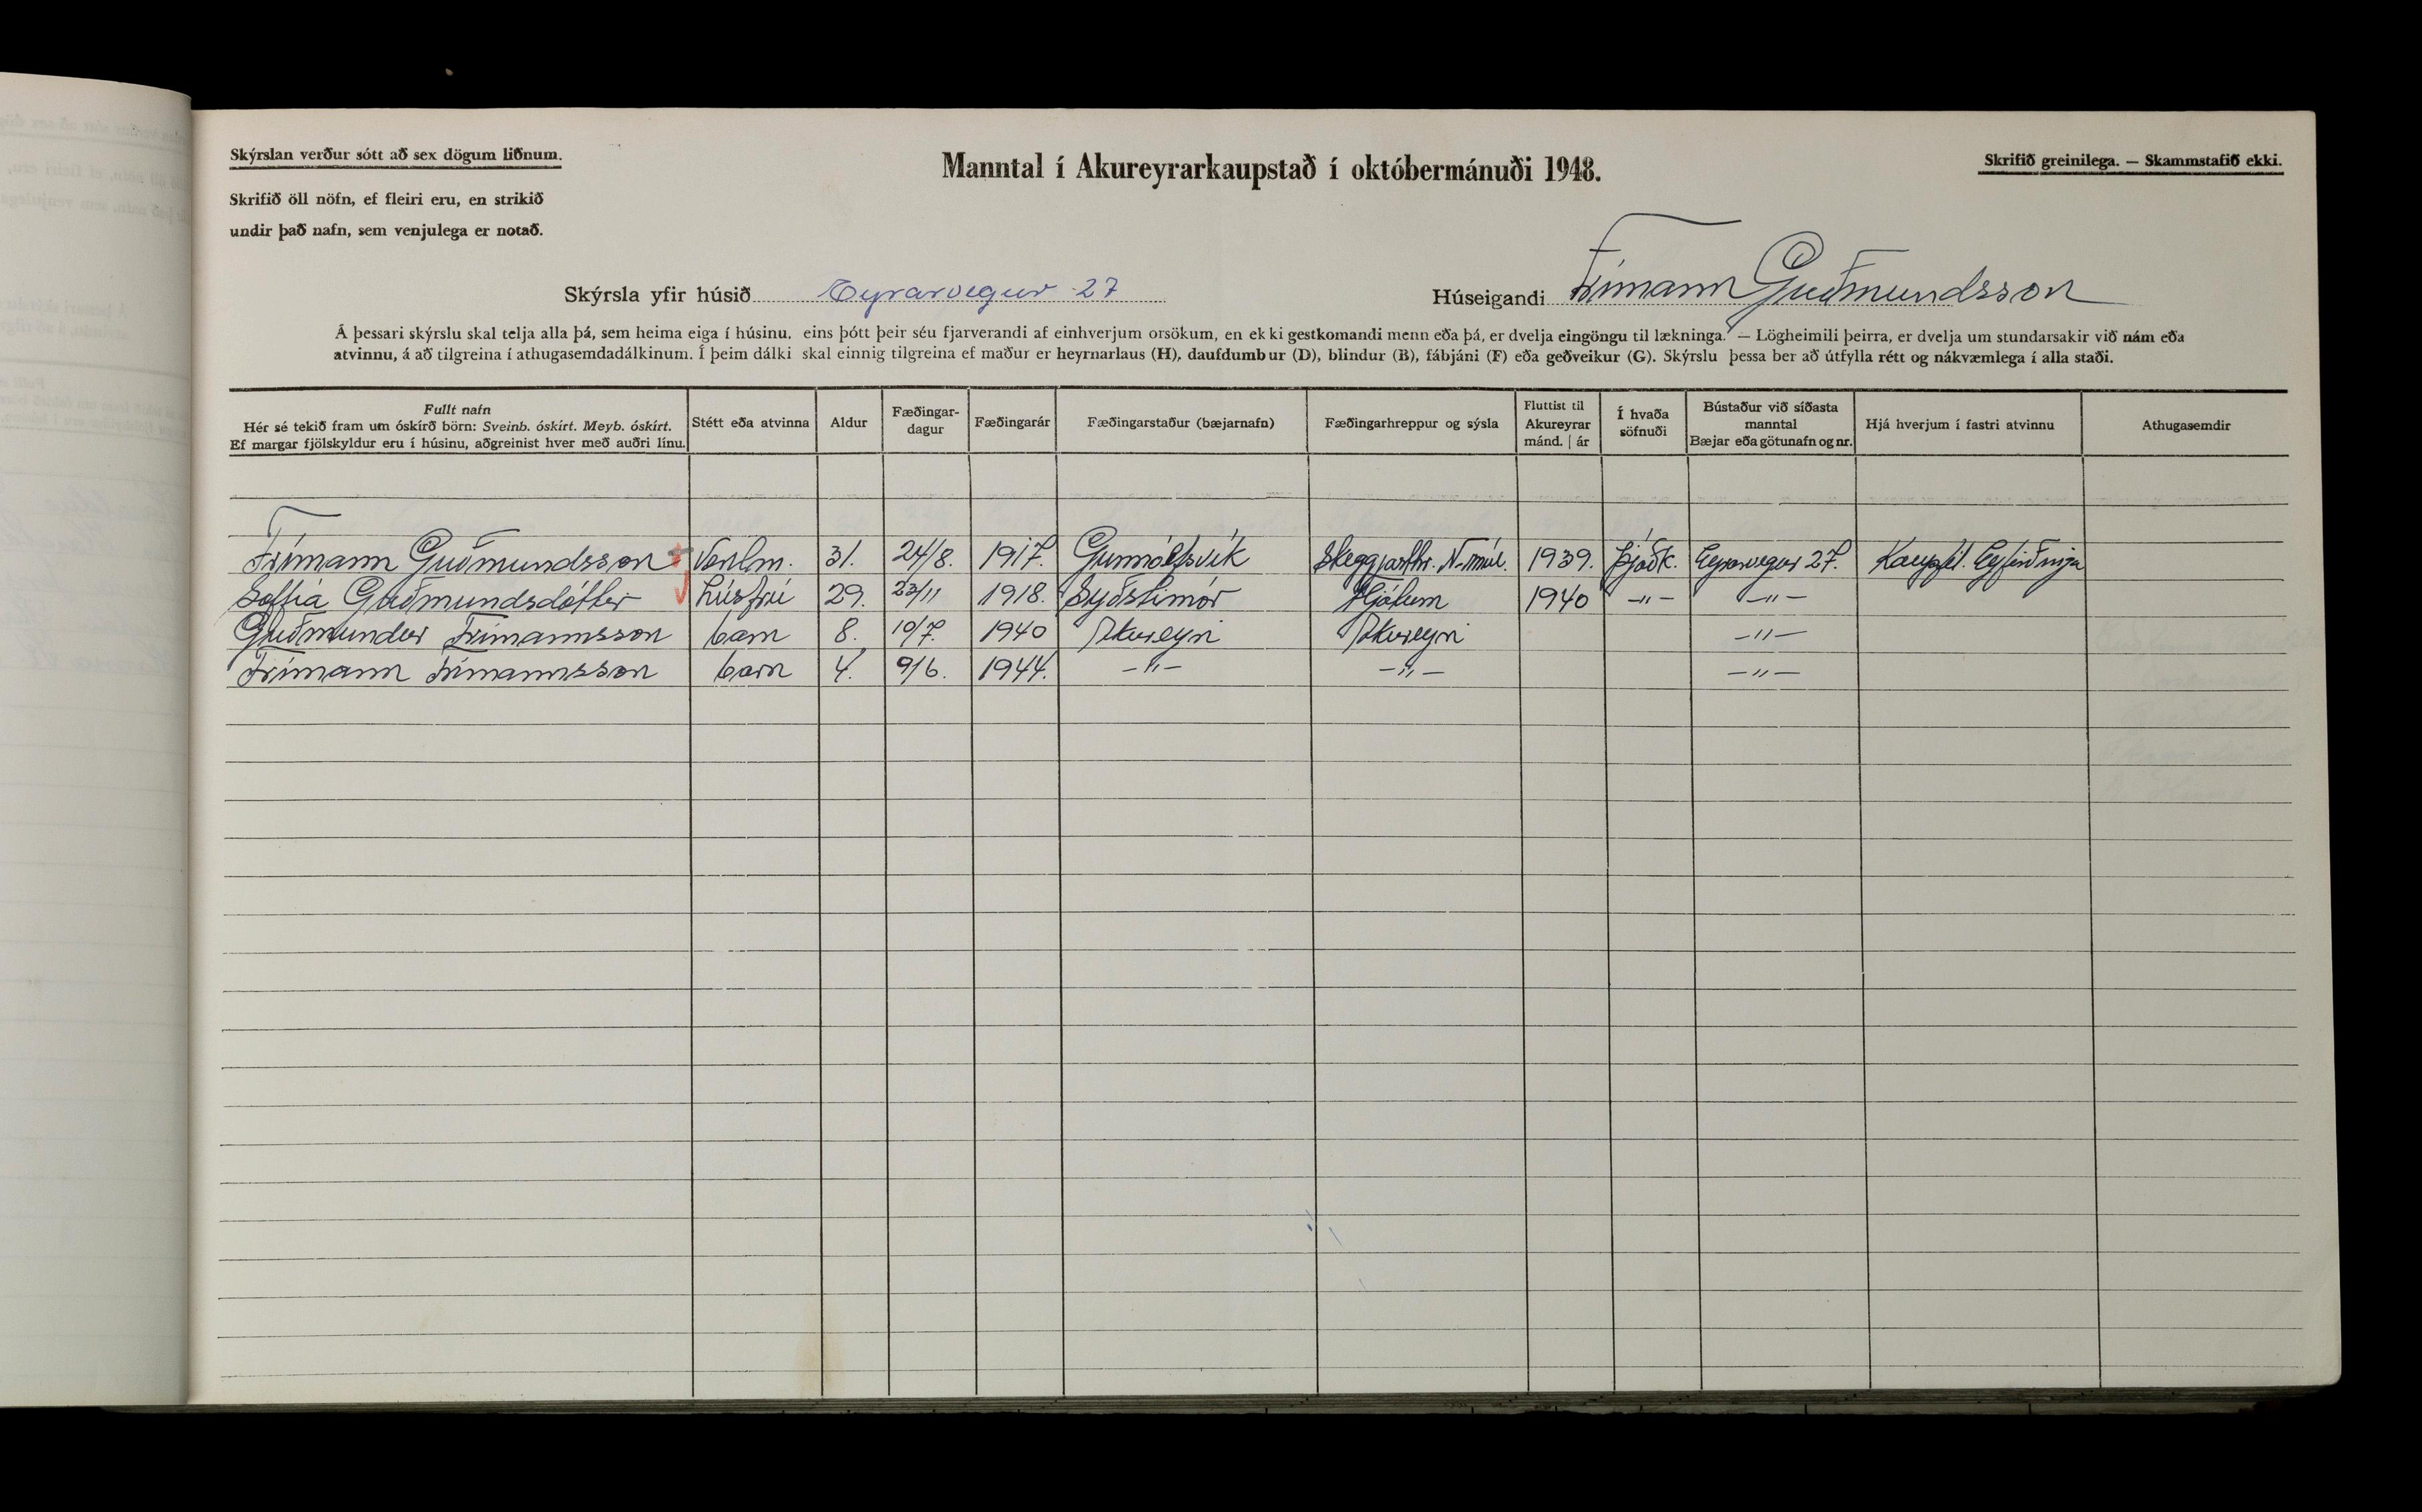 Skýrslan verður sótt að sex dögum liðnum.
Manntal í Akureyrarkaupstað í októbermánuði 1948.
Skrifið greinilega. — Skammstafið ekki.
Skrifið öll nöfn, ef fleiri eru, en strikið
undir það nafn, sem venjulega er notað.
Skýrsla yfir húsið Eyrarvegur 27
Húseigandi Frímann Guðmundsson
Á þessari skýrslu skal telja alla þá, sem heima eiga í húsinu, eins þótt þeir séu fjarverandi af einhverjum orsökum, en ekki gestkomandi menn eða þá, er dvelja eingöngu til lækninga. — Lögheimili þeirra, er dvelja um stundarsakir við nám eða
atvinnu, á að tilgreina í athugasemdadálkinum. Í þeim dálki skal einnig tilgreina ef maður er heyrnarlaus (H), daufdumbur (D), blindur (B), fábjáni (F) eða geðveikur (G). Skýrslu þessa ber að útfylla rétt og nákvæmlega í alla staði.
Fullt nafn
Hér sé tekið fram um óskírð börn: Sveinb. óskírt. Meyb. óskírt.
Ef margar fjölskyldur eru í húsinu, aðgreinist hver með auðri línu.
Stétt eða atvinna
Aldur
Fæðingar-
dagur
Fæðingarár
Fæðingarstaður (bæjarnafn)
Fæðingarhreppur og sýsla
Fluttist til
Akureyrar
mánd. | ár
Í hvaða
söfnuði
Bústaður við síðasta
manntal
Bæjar eða götunafn og nr.
Hjá hverjum í fastri atvinnu
Athugasemdir
Frímann Guðmundsson Verslm. 31. 24/8. 1917. Gunnólfsvík Skeggjasthr. N-múl. 1939. Þjóðk. Eyrarvegur 27. Kaupfél. Eyfirðinga
Soffía Guðmundsdóttir húsfrú 29. 23/11 1918. 1940 -"- -"-
Guðmundur Frímannsson barn 8. 10/7. 1940 Akureyri Akureyri -"-
Frímann Frímannsson barn 4. 9/6. 1944. -"- -"- -"-